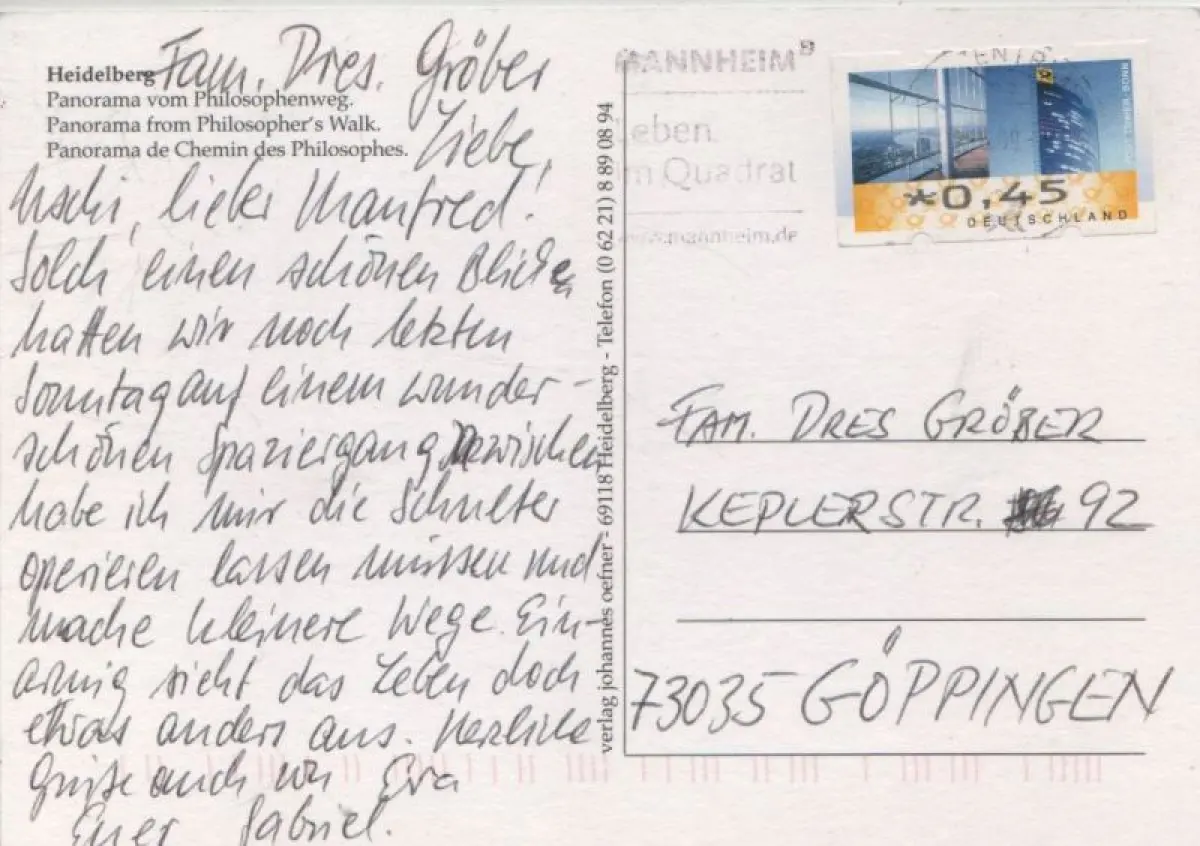 Fam. Dres. Gröber
Heidelberg
Panorama vom Philosophenweg.
Panorama from Philosopher's Walk.
Panorama de Chemin des Philosophes.
Liebe
Uschi, lieber Manfred!
Solch einen schönen Blick
hatten wir noch letzten
Sonntag auf einem wunder-
schönen Spaziergang. Inzwischen
habe ich mir die Schulter
operieren lassen müssen und
mache kleinere Wege. Ein-
armig sieht das Leben doch
etwas anders aus. Herzliche
Grüße auch von Eva
Euer Gabriel.
verlag johannes oefner - 69118 Heidelberg - Telefon (0 62 21) 8 89 08 94
MANNHEIM²
Leben.
Im Quadrat
www.mannheim.de
*0,45
DEUTSCHLAND
FAM. DRES GRÖBER
KEPLERSTR. 92
73035 GÖPPINGEN